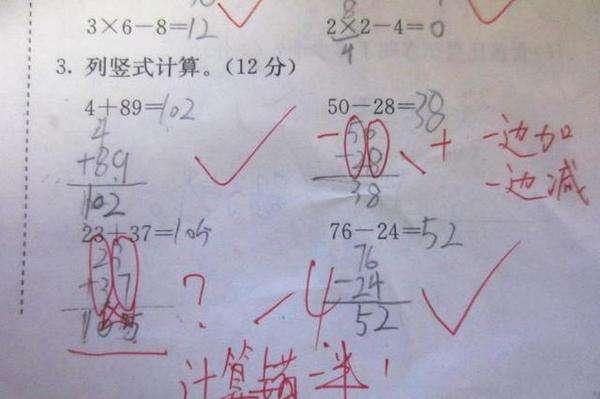 3×6-8=12
2×2-4=0
4
3. 列竖式计算。(12分)
4+89=102
50-28=38
4
+89
102
50
-28
38
- +
一边加
一边减
23+37=105
76-24=52
23
+37
105
?
-4
76
-24
52
计算错一半!